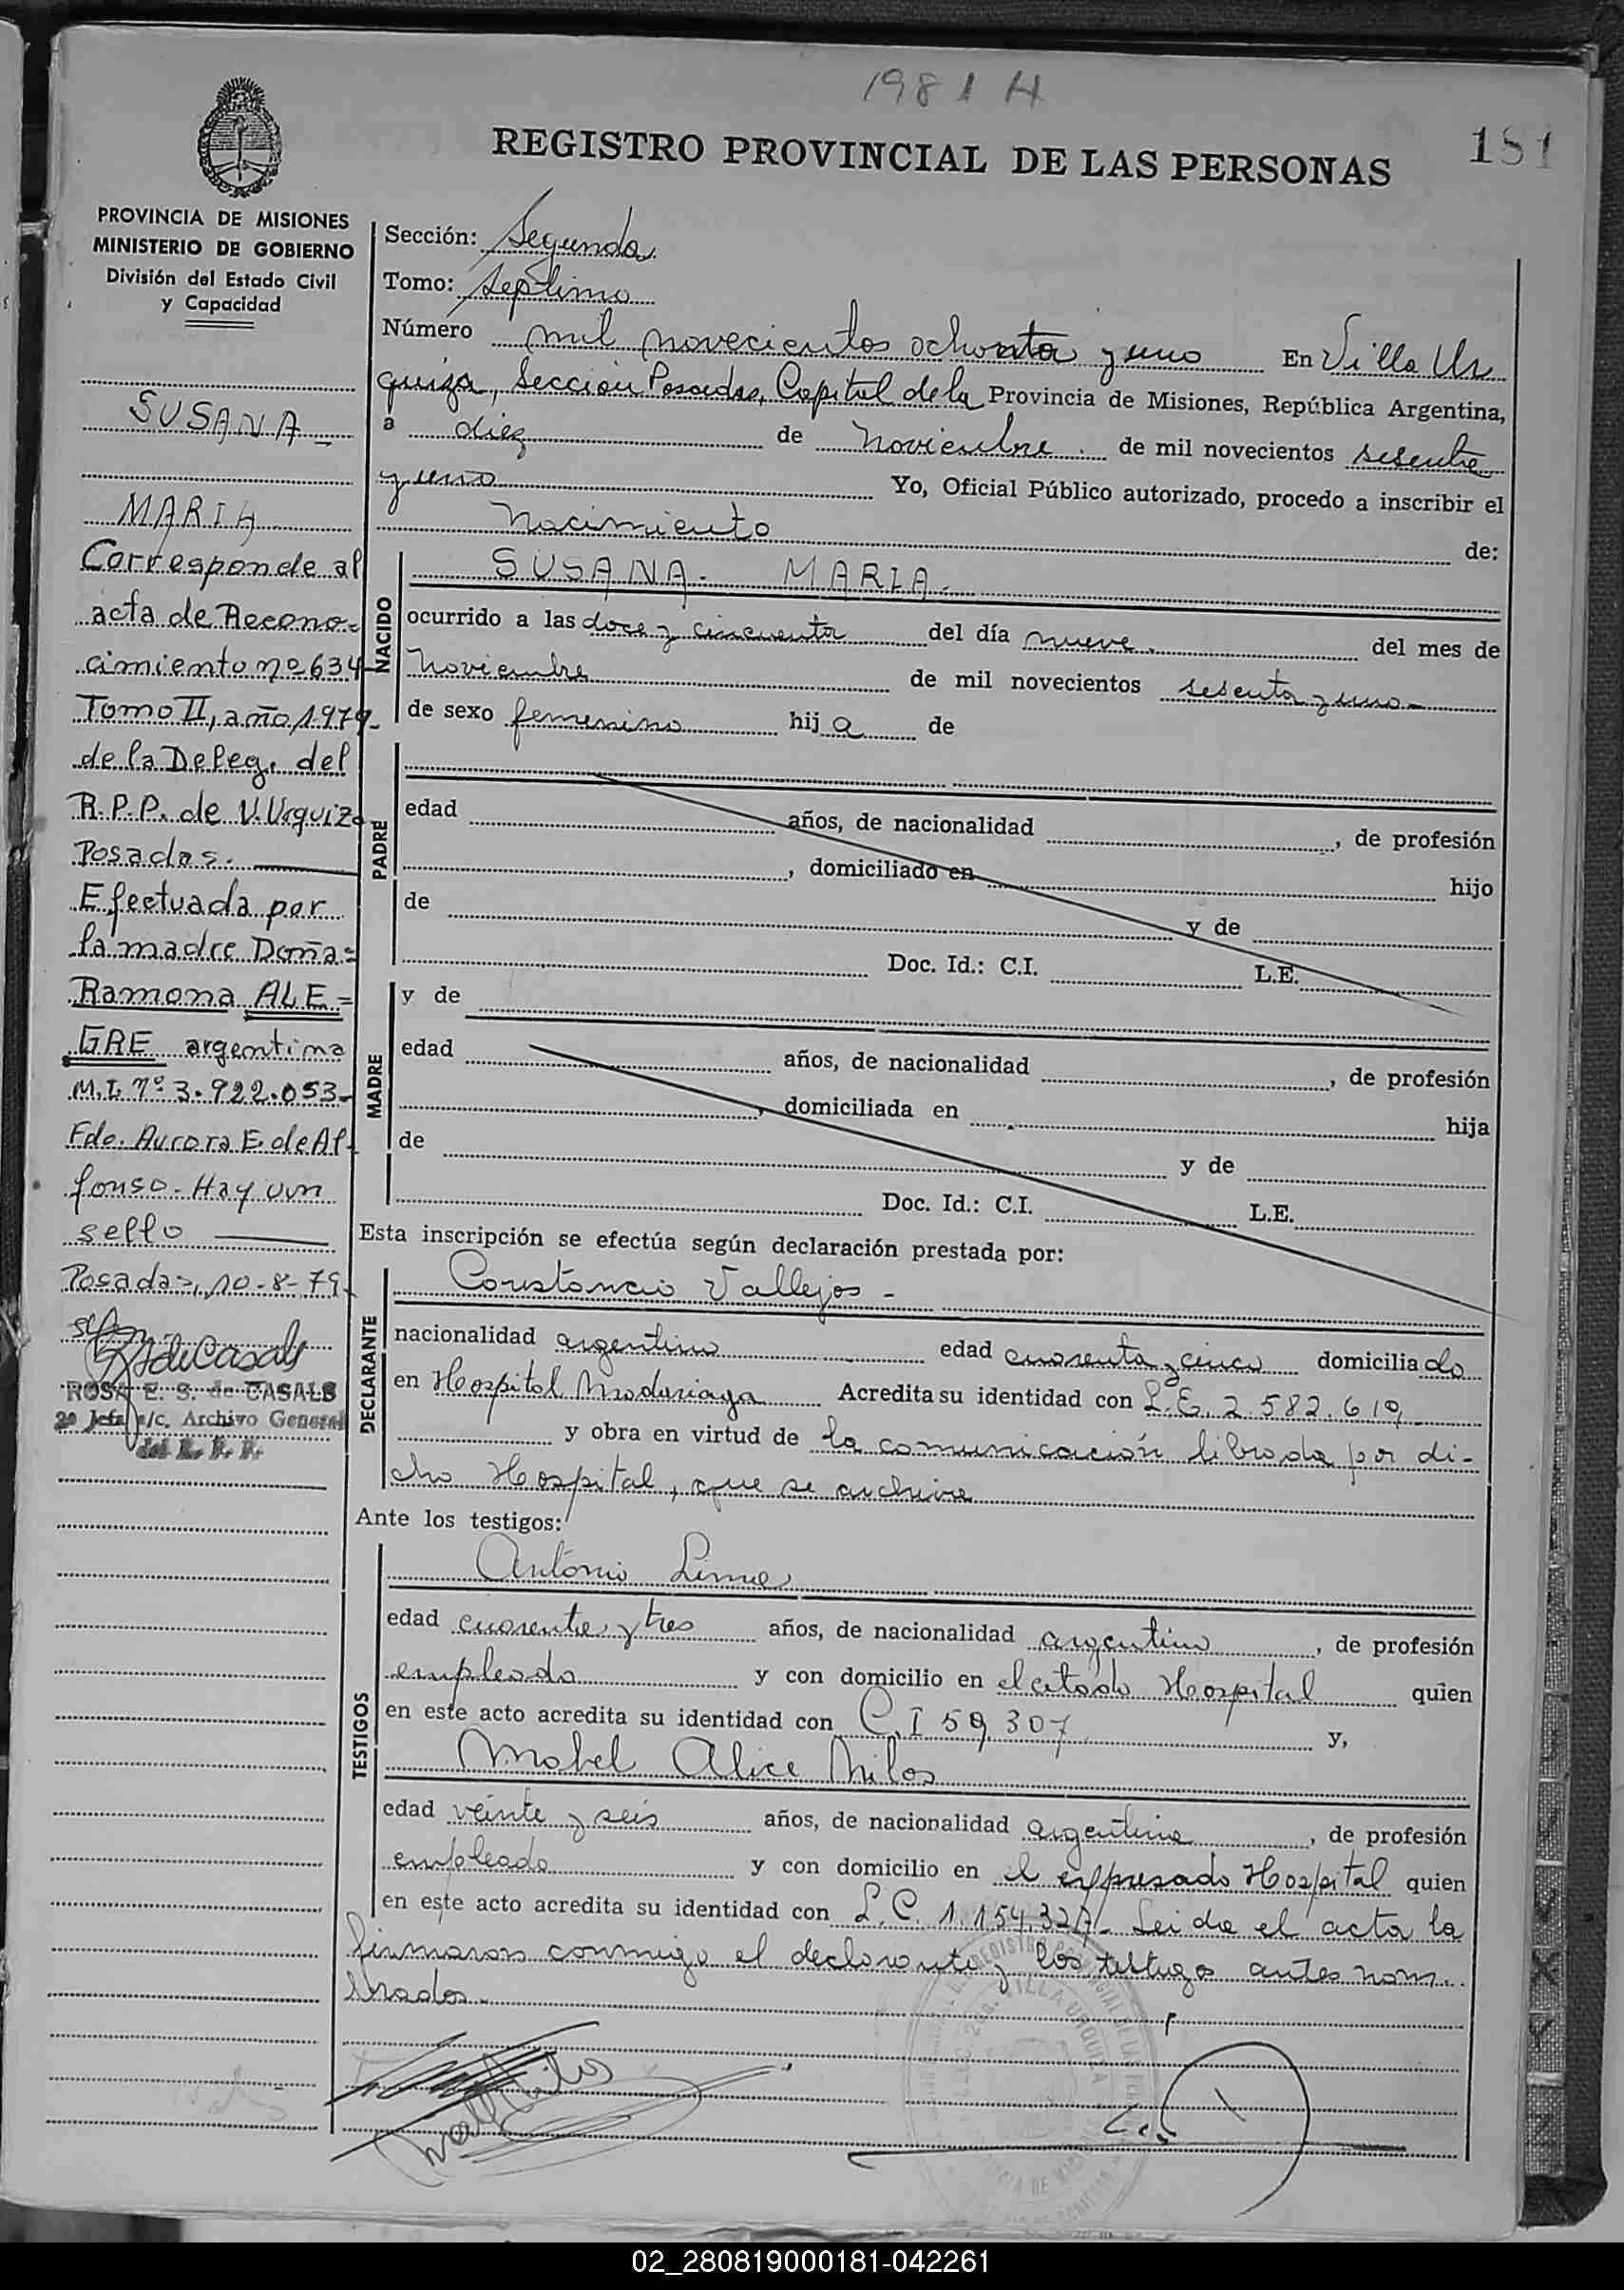 1981 H
181
REGISTRO PROVINCIAL DE LAS PERSONAS
PROVINCIA DE MISIONES
MINISTERIO DE GOBIERNO
División del Estado Civil
y Capacidad
SUSANA -
MARIA
Corresponde al
acta de Recono-
cimiento nº 634
Tomo II, año 1979-
de la Deleg. del
R.P.P. de V. Urquiza
Posadas.
Efectuada por
la madre Doña =
Ramona ALE =
GRE argentina
M.I. nº 3.922.053-
Fdo. Aurora E. de Al-
fonso - Hay un
sello
Posadas, 10-8-79-
ROSA E. S. de CASALS
2º Jefa a/c. Archivo General
del R. P. P.
Sección: Segunda
Tomo: Septimo
Número mil novecientos ochenta y uno En Villa Ur
quiza, Sección Posadas, Capital de la Provincia de Misiones, República Argentina,
a diez de Noviembre de mil novecientos sesenta
y uno Yo, Oficial Público autorizado, procedo a inscribir el
Nacimiento de:
NACIDO
SUSANA - MARIA.
ocurrido a las doce y cincuenta del día nueve. del mes de
Noviembre de mil novecientos sesenta y uno-
de sexo femenino hija de
PADRE
edad años, de nacionalidad , de profesión
, domiciliado en hijo
de y de
Doc. Id.: C.I. L.E.
MADRE
y de
edad años, de nacionalidad , de profesión
, domiciliada en hija
de y de
Doc. Id.: C.I. L.E.
Esta inscripción se efectúa según declaración prestada por:
DECLARANTE
Constancio Vallejos -
nacionalidad argentino edad cuarenta y cinco domiciliado
en Hospital Madariaga Acredita su identidad con L.E. 2.582.619
y obra en virtud de la comunicación librada por di-
cho Hospital, que se archiva
Ante los testigos:
TESTIGOS
Antonio Lima
edad cuarenta y tres años, de nacionalidad argentino , de profesión
empleado y con domicilio en el citado Hospital quien
en este acto acredita su identidad con C.I 59.307 y,
Mabel Alice Milos
edad veinte y seis años, de nacionalidad argentina , de profesión
empleada y con domicilio en el expresado Hospital quien
en este acto acredita su identidad con L.C. 1.154.327- Leida el acta la
firmaron conmigo el declarante y los testigos antes nom-
brados.
VILLA URQUIZA
02_280819000181-042261